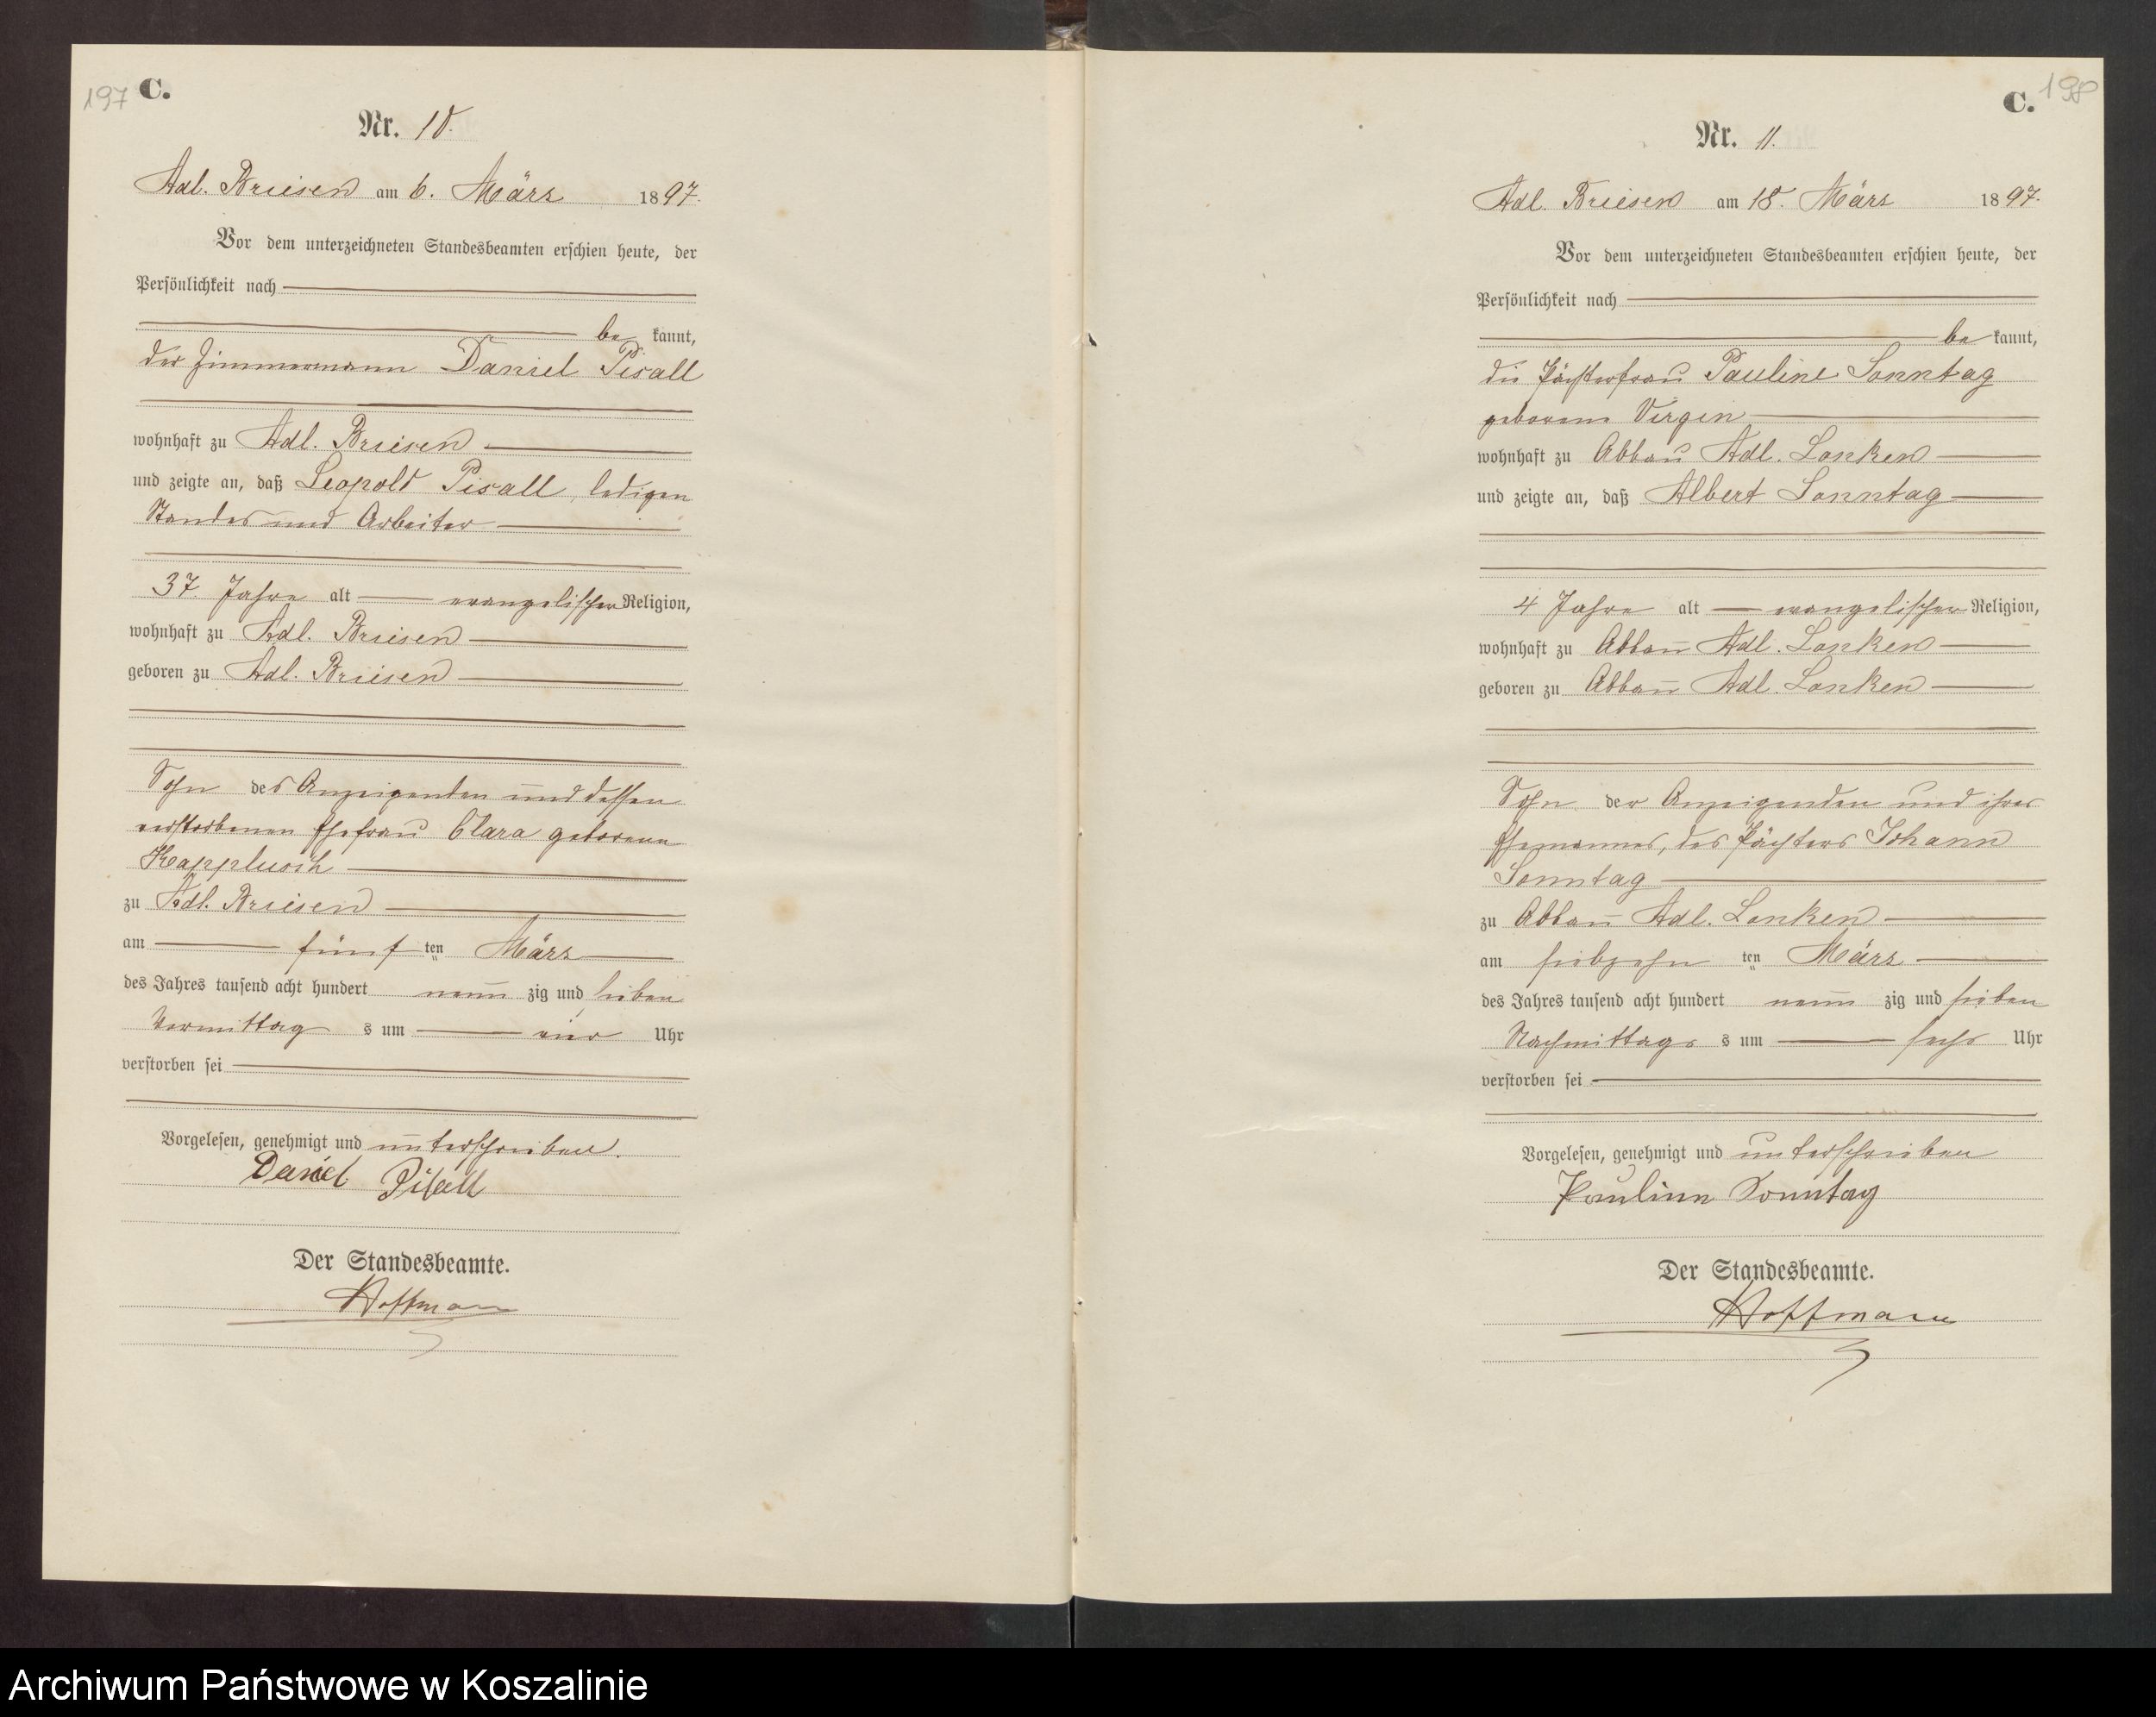 197 C.
Nr. 10.
Adl. Briesen am 6. März 1897.
Vor dem unterzeichneten Standesbeamten erschien heute, der
Persönlichkeit nach
be kannt,
der Zimmermann Daniel Pisall
wohnhaft zu Adl. Briesen
und zeigte an, daß Leopold Pisall, ledigen
Standes und Arbeiter
37 Jahre alt evangelischer Religion,
wohnhaft zu Adl. Briesen
geboren zu Adl. Briesen
Sohn des Anzeigenden und dessen
verstorbenen Ehefrau Clara geborene
zu Adl. Briesen
am fünf ten März
des Jahres tausend acht hundert neun zig und sieben
Vormittag s um vier Uhr
verstorben sei
Vorgelesen, genehmigt und unterschrieben.
Daniel Pisall
Der Standesbeamte.
Hoffmann
C. 198
Nr. 11.
Adl. Briesen am 18. März 1897.
Vor dem unterzeichneten Standesbeamten erschien heute, der
Persönlichkeit nach
be kannt,
die Pächterfrau Pauline Sonntag
geborene Virgen
wohnhaft zu Abbau Adl. Lonken
und zeigte an, daß Albert Sonntag
4 Jahre alt evangelischer Religion,
wohnhaft zu Abbau Adl. Lonken
geboren zu Abbau Adl. Lonken
Sohn der Anzeigenden und ihres
Ehemannes, des Pächters Johann
Sonntag
zu Abbau Adl. Lonken
am siebzehn ten März
des Jahres tausend acht hundert neun zig und sieben
Nachmittags s um sechs Uhr
verstorben sei
Vorgelesen, genehmigt und unterschrieben
Pauline Sonntag
Der Standesbeamte.
Hoffmann
Archiwum Państwowe w Koszalinie